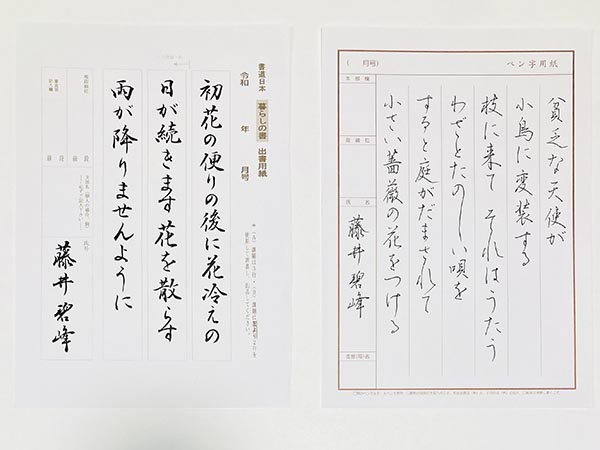 書道日本 暮らしの書 出書用紙
令和 年 月号
初花の便りの後に花冷えの
日が続きます花を散らす
雨が降りませんように
藤井碧峰
ペン字用紙
( 月号)
貧乏な天使が
小鳥に変装する
枝に来て それはうたう
わざとたのしい唄を
すると庭がだまされて
小さい薔薇の花をつける
氏名
藤井碧峰